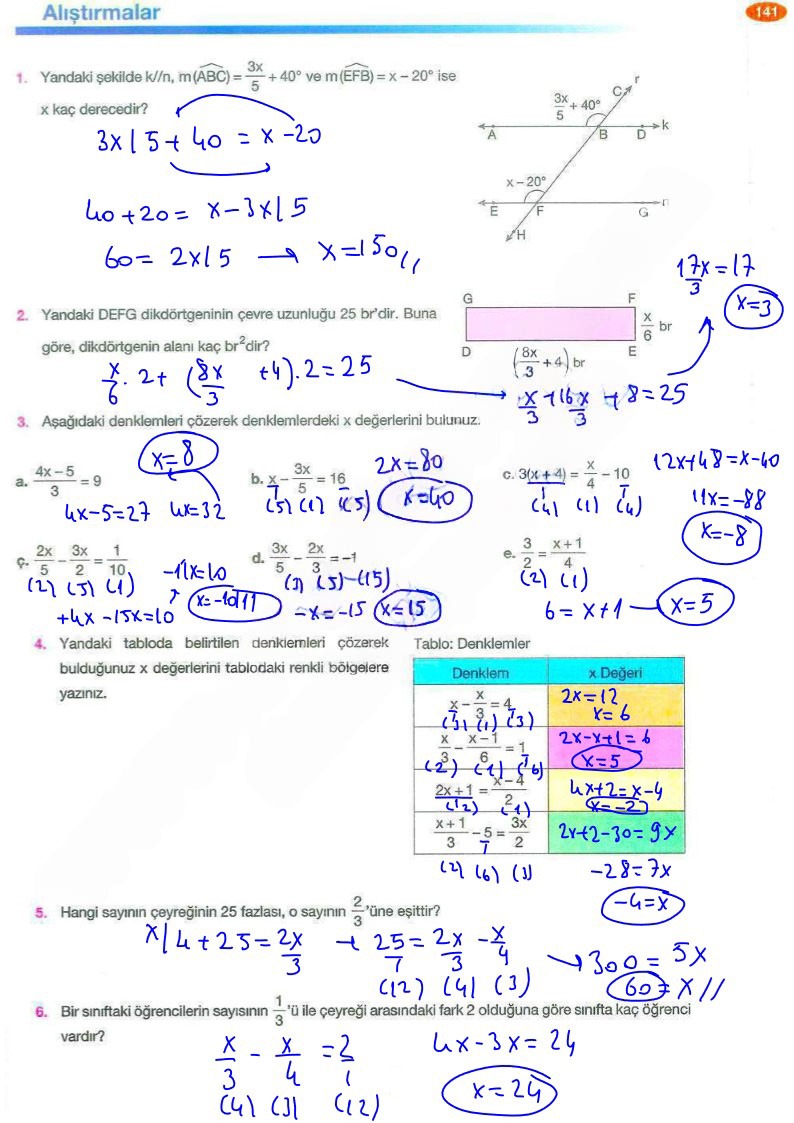 Alıştırmalar
141
1. Yandaki şekilde k//n, m(ABC) = 3x/5 + 40° ve m(EFB) = x – 20° ise
x kaç derecedir?
3x/5 + 40 = x – 20
40 + 20 = x – 3x/5
60 = 2x/5 → x = 150//
r
C
3x/5 + 40°
A B D k
x – 20°
E F G n
H
2. Yandaki DEFG dikdörtgeninin çevre uzunluğu 25 br'dir. Buna
göre, dikdörtgenin alanı kaç br²dir?
x/6 . 2 + (8x/3 + 4) . 2 = 25
G F
x/6 br
D E
(8x/3 + 4) br
x/3 + 16x/3 + 8 = 25
17x/3 = 17
x = 3
3. Aşağıdaki denklemleri çözerek denklemlerdeki x değerlerini bulunuz.
a. (4x – 5)/3 = 9
4x – 5 = 27 4x = 32
x = 8
b. x – 3x/5 = 16
(5) (1) (5)
2x = 80
x = 40
c. 3(x + 4) = x/4 – 10
(4) (1) (4)
12x + 48 = x – 40
11x = –88
x = –8
ç. 2x/5 – 3x/2 = 1/10
(2) (5) (1)
+4x – 15x = 10
–11x = 10
x = –10/11
d. 3x/5 – 2x/3 = –1
(3) (5) –(15)
–x = –15 x = 15
e. 3/2 = (x + 1)/4
(2) (1)
6 = x + 1
x = 5
4. Yandaki tabloda belirtilen denklemleri çözerek
bulduğunuz x değerlerini tablodaki renkli bölgelere
yazınız.
Tablo: Denklemler
Denklem x Değeri
x – x/3 = 4
(3) (1) (3)
2x = 12
x = 6
x/3 – (x – 1)/6 = 1
(2) (1) (6)
2x – x + 1 = 6
x = 5
2x + 1 = (x – 4)/2
(2) (1)
4x + 2 = x – 4
x = –2
(x + 1)/3 – 5 = 3x/2
(2) (6) (3)
2x + 2 – 30 = 9x
–28 = 7x
–4 = x
5. Hangi sayının çeyreğinin 25 fazlası, o sayının 2/3'üne eşittir?
x/4 + 25 = 2x/3 → 25/1 = 2x/3 – x/4
(12) (4) (3)
→ 300 = 5x
60 = x//
6. Bir sınıftaki öğrencilerin sayısının 1/3'ü ile çeyreği arasındaki fark 2 olduğuna göre sınıfta kaç öğrenci
vardır?
x/3 – x/4 = 2/1
(4) (3) (12)
4x – 3x = 24
x = 24